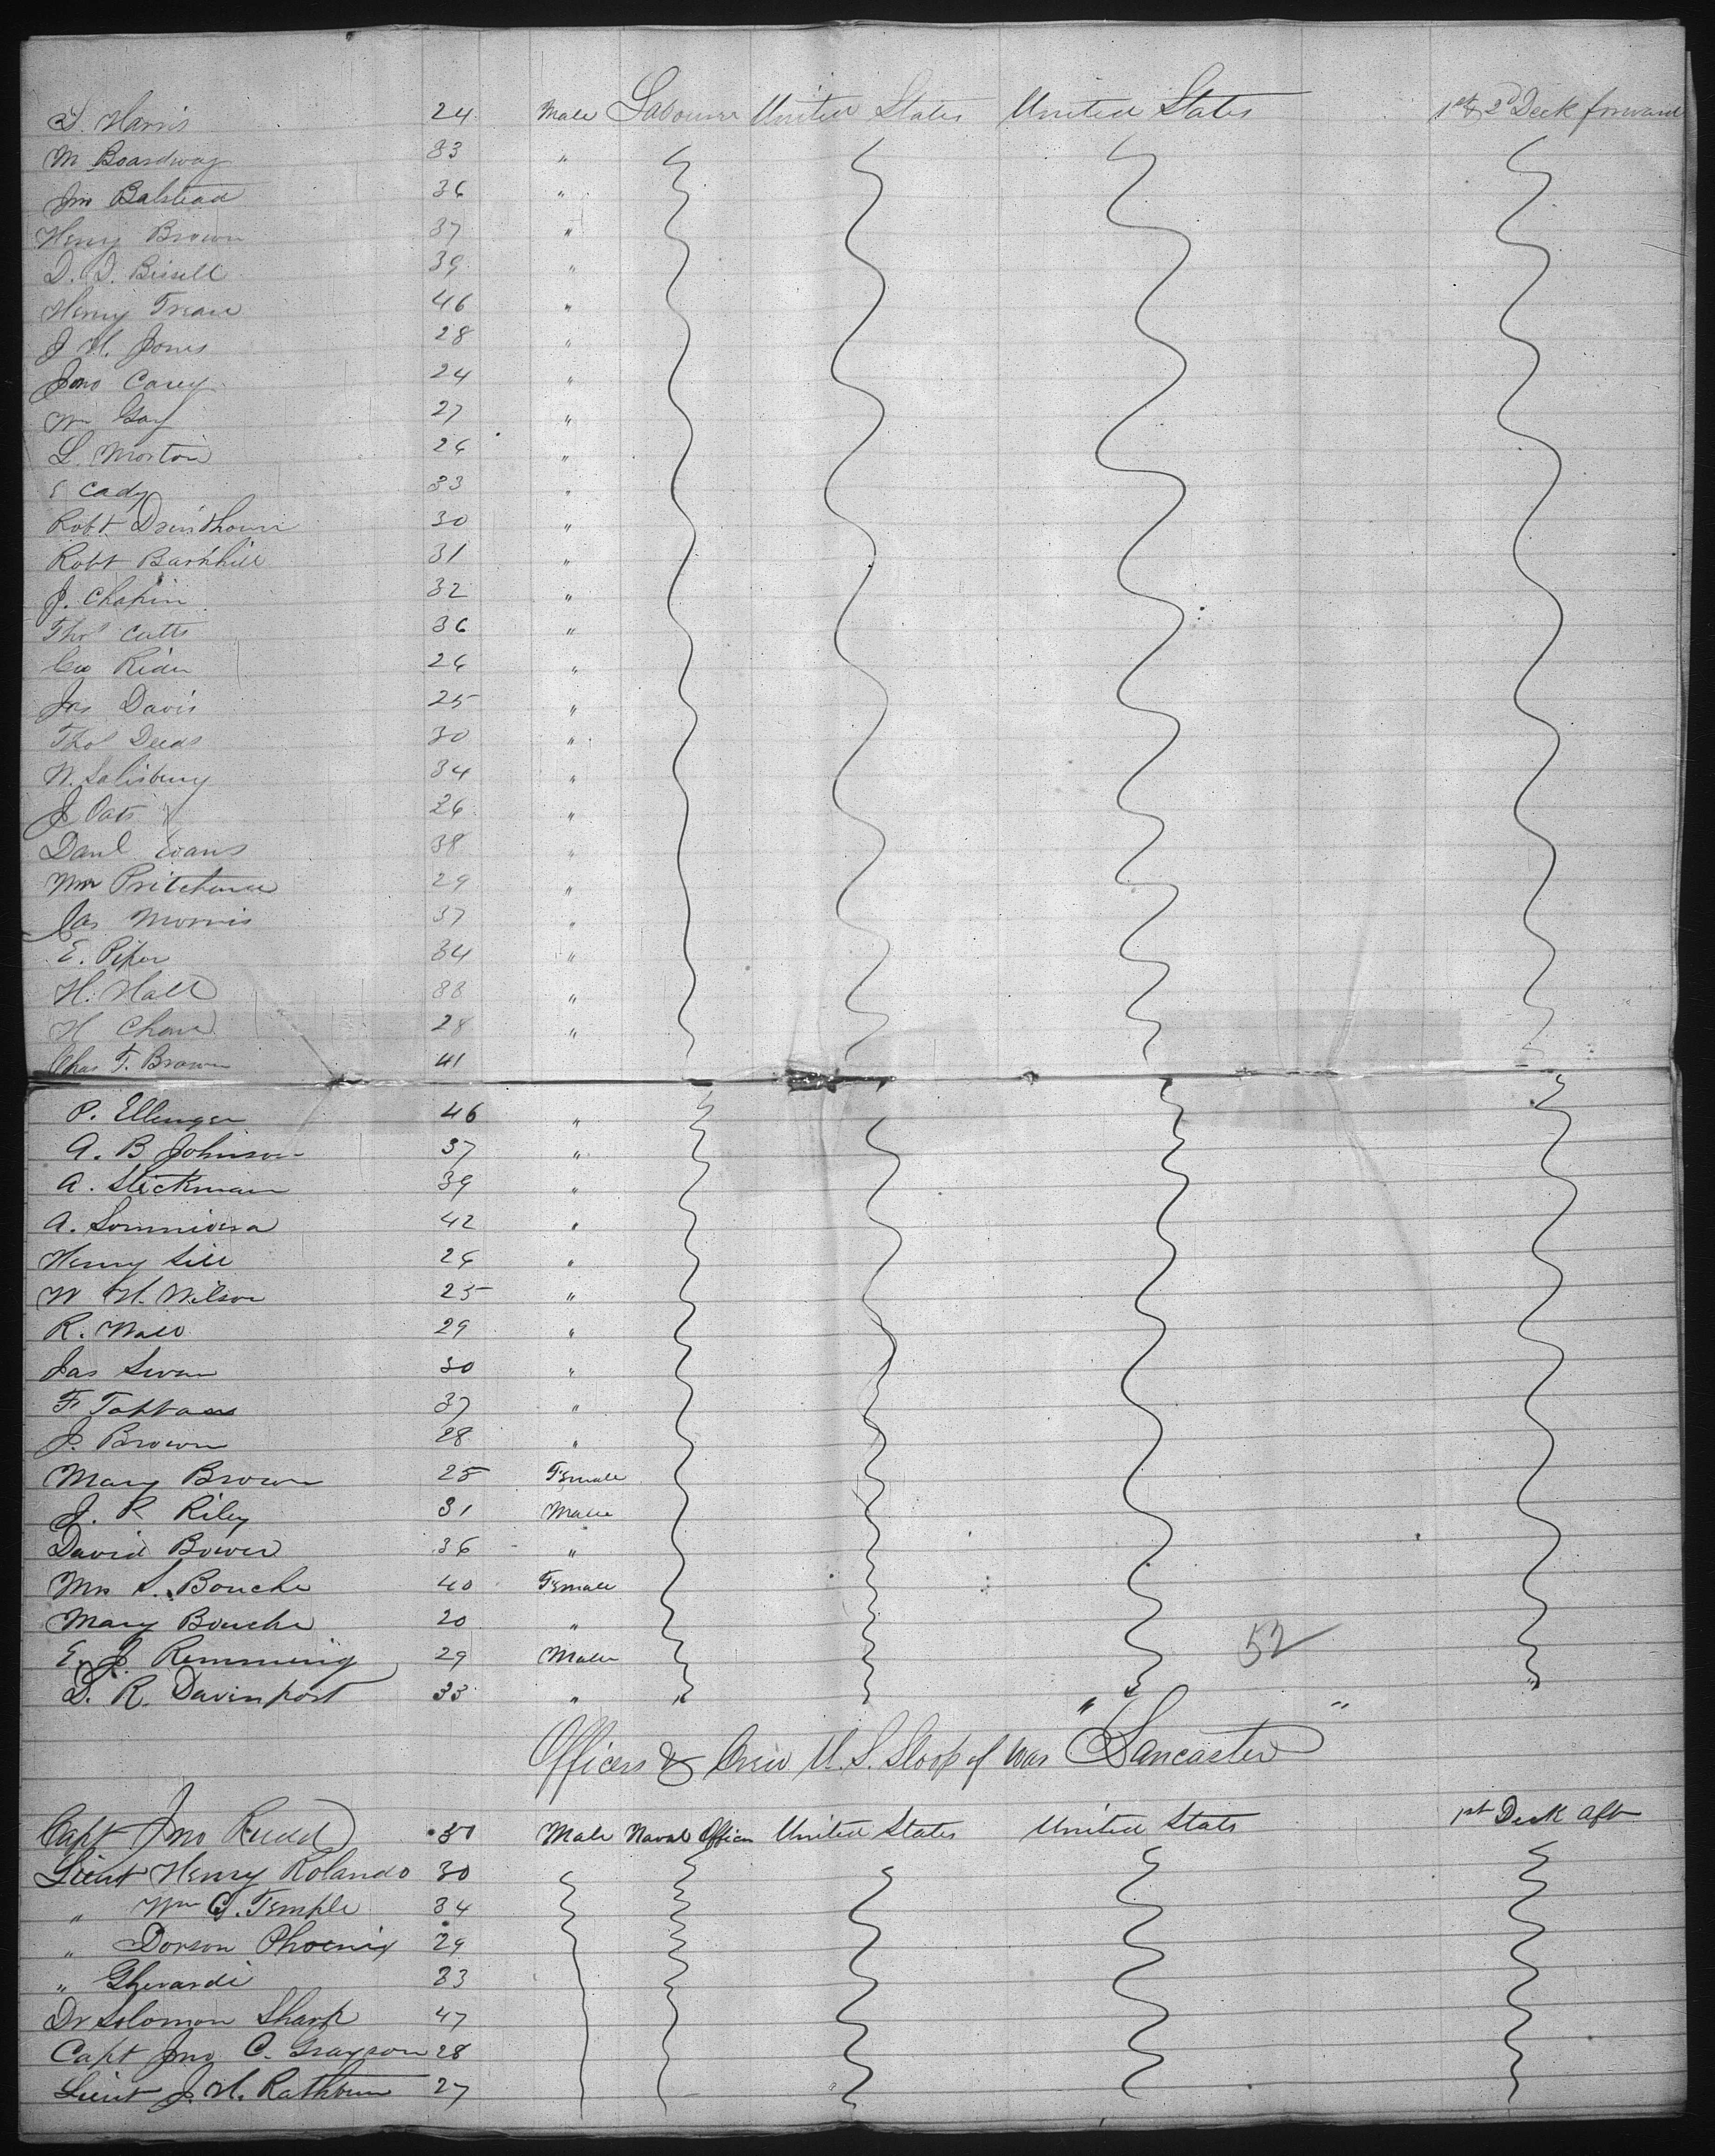 S. Harris 24 Male Labourer United States United States 1st & 2d Deck forward
M Boardway 33 "
Jno Balstead 36 "
Henry Brown 37 "
D. D. Bissell 39 "
Henry 46 "
J H. Jones 28 "
Jno Carey 24 "
Wm Gay 27 "
L. Morton 26 "
S Cady 33 "
Robt 30 "
Robt Barnhill 31 "
J. Chapin 32 "
Thos Catts 36 "
Geo Rider 26 "
Jas Davis 25 "
Thos Deeds 30 "
N. Salisbury 34 "
J Oats 26 "
Danl Evans 38 "
Wm 29 "
Jas Morris 37 "
E. Piper 34 "
H. Hall 38 "
H Chase 28 "
Chas F. Brown 41
P. Ellinger 46 "
A. B Johnson 37 "
A. Stickman 39 "
A. 42 "
Henry Sill 26 "
W H. Wilson 25 "
R. 29 "
Jas Swan 30 "
F. 37 "
J. Brown 28 "
Mary Brown 25 Female
J. R Riley 31 Male
David Bower 36 "
Mrs S. Bouche 40 Female
Mary Bouche 20 "
E. J. Remming 29 Male 52
D. R. Davinport 33 " " " "
Officers & Crew U. S. Sloop of War "Lancaster"
Capt Jno Rudd Male Naval Officer United States United Stats 1st Deck aft
Lieut Henry Rolando 30
" Wm G. Temple 34
" Dorson Phoenix 29
" Gherardi 33
Dr Solomon Sharp 47
Capt Jno C. Grayson 28
Lieut J. H. Rathbun 27